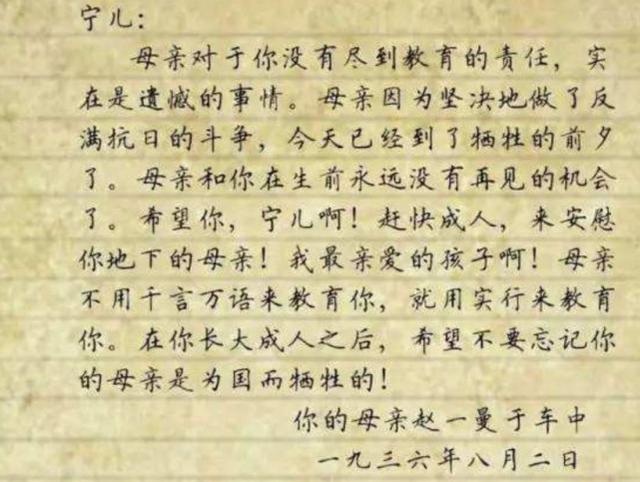 宁儿：
母亲对于你没有尽到教育的责任，实
在是遗憾的事情。母亲因为坚决地做了反
满抗日的斗争，今天已经到了牺牲的前夕
了。母亲和你在生前永远没有再见的机会
了。希望你，宁儿啊！赶快成人，来安慰
你地下的母亲！我最亲爱的孩子啊！母亲
不用千言万语来教育你，就用实行来教育
你。在你长大成人之后，希望不要忘记你
的母亲是为国而牺牲的！
你的母亲赵一曼于车中
一九三六年八月二日